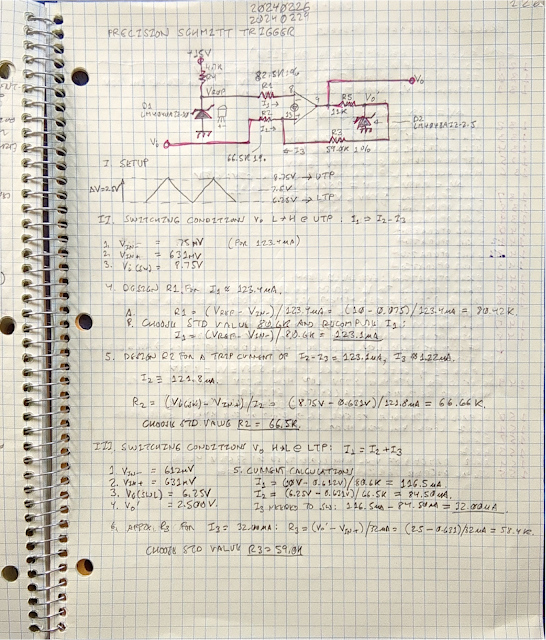 20240226
20240229
PRECISION SCHMITT TRIGGER
+15V
4.7K
R4
VREF
82.5K 1%
R1
I1→
R2
I2→
D1
LM4040AIZ-10
Vi
66.5K 1%
←I3
R5
11K
Vo'
Vo
R3
59.0K 1%
D2
LM4040AIZ-2.5
I. SETUP
ΔV=2.5V
8.75V → UTP
7.5V
6.25V → LTP
II. SWITCHING CONDITIONS Vo L→H @ UTP: I1 = I2-I3
1. VIN- = 75mV (FOR 123.4µA)
2. VIN+ = 631mV
3. Vi(SW) = 8.75V
4. DESIGN R1 FOR I1 ≅ 123.4µA.
A. R1 = (VREF - VIN-)/123.4µA = (10 - 0.075)/123.4µA = 80.42K.
B. CHOOSE STD VALUE 80.6K AND RECOMPUTE I1:
I1 = (VREF - VIN-)/80.6K = 123.1µA
5. DESIGN R2 FOR A TRIP CURRENT OF I2-I3 = 123.1µA, I3 ≅ 1.22µA.
I2 = 121.8µA.
R2 = (Vi(SW) - VIN+)/I2 = (8.75V - 0.631V)/121.8µA = 66.66K.
CHOOSE STD VALUE R2 = 66.5K.
III. SWITCHING CONDITIONS Vo H→L @ LTP: I1 = I2+I3
1. VIN- = 612mV
2. VIN+ = 631mV
3. Vi(SWL) = 6.25V
4. Vo' = 2.500V.
5. CURRENT CALCULATIONS
I1 = (10V - 0.612V)/80.6K = 116.5µA
I2 = (6.25V - 0.631V)/66.5K = 84.50µA.
I3 NEEDED TO SW: 116.5µA - 84.50µA = 32.00µA
6. APPROX. R3 FOR I3 = 32.00µA: R3 = (Vo' - VIN+)/32µA = (2.5 - 0.631)/32µA = 58.4K.
CHOOSE STD VALUE R3 = 59.0K